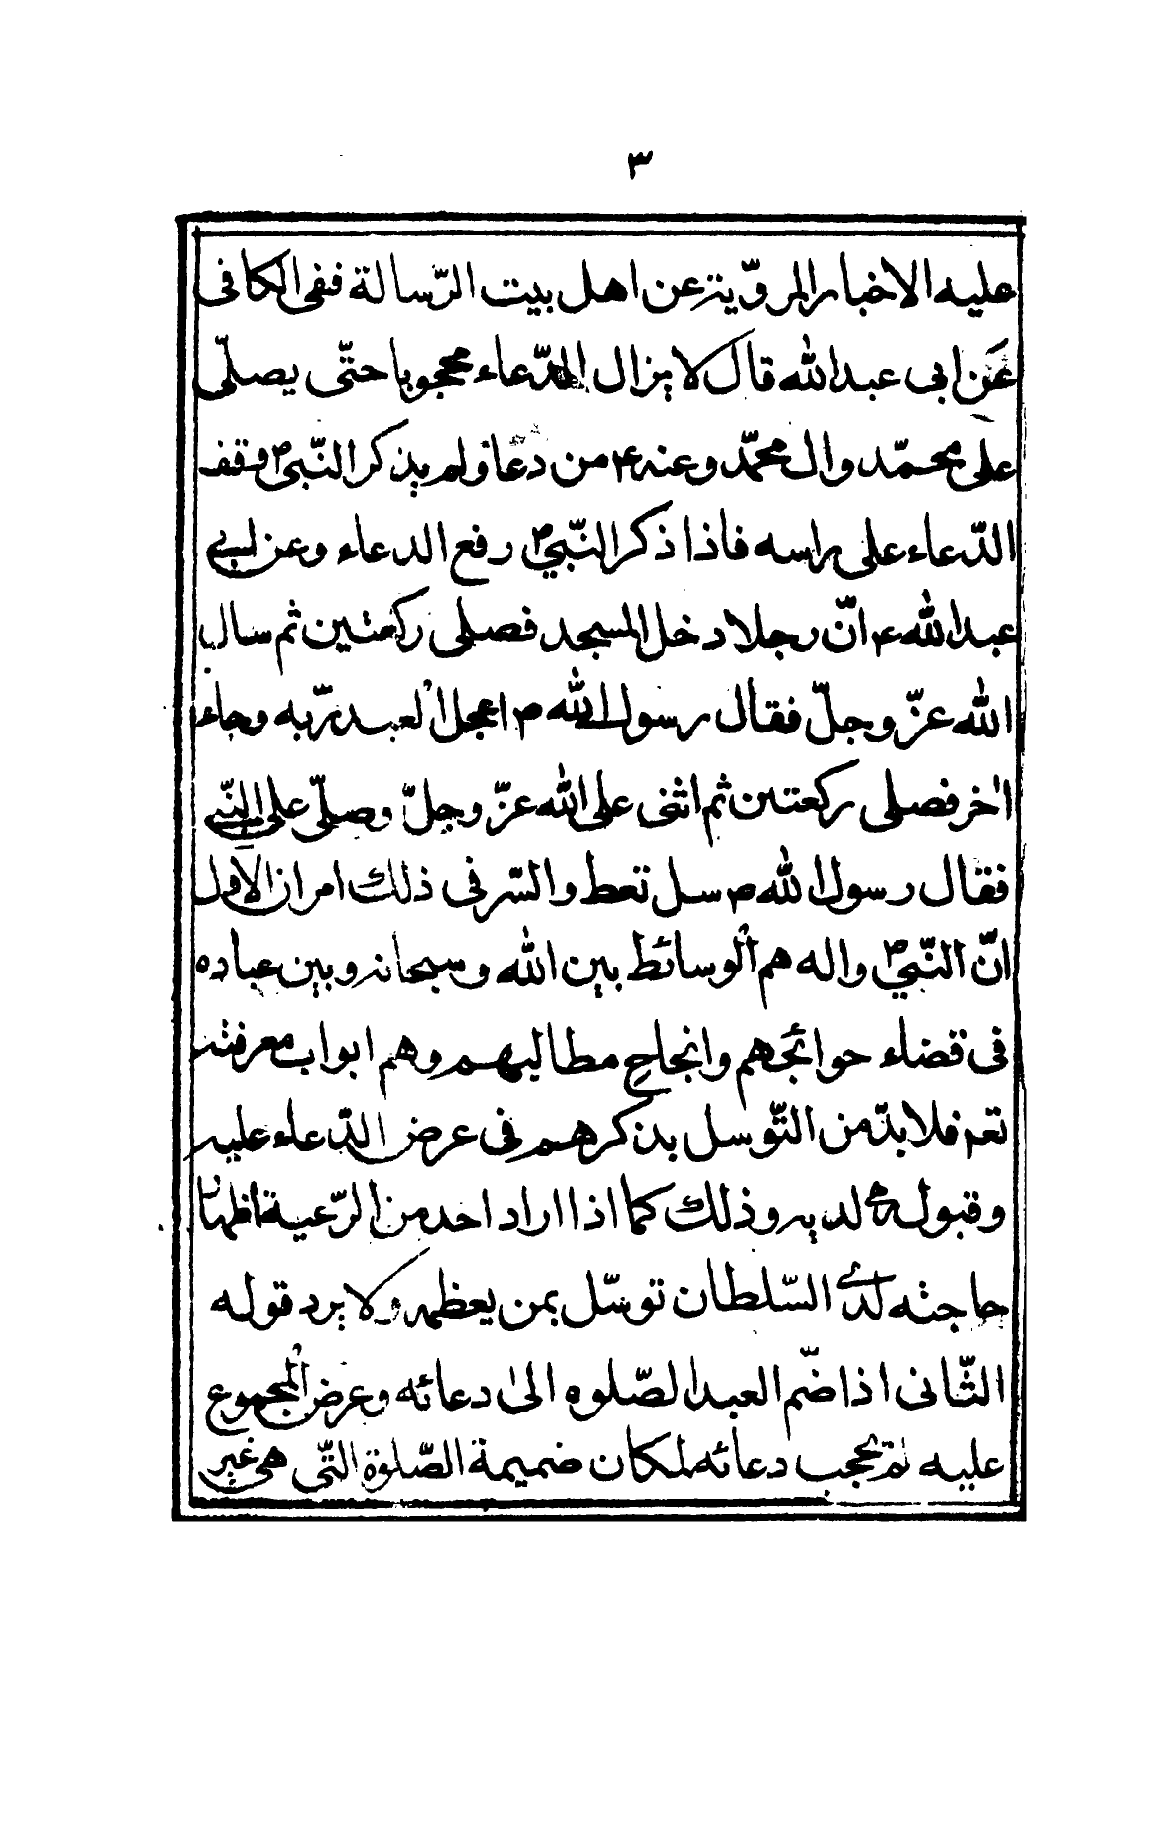 ٣
عليه الاخبار المرويّة عن اهل بيت الرّسالة ففى الكافى
عن ابى عبد الله قال لا يزال الدّعاء محجوبا حتّى يصلّى
على محمّد وال محمّد وعنه ع من دعا ولم يذكر النّبىّ ص وقف
الدّعاء على راسه فاذا ذكر النّبىّ ص رفع الدعاء وعن ابى
عبد الله ع انّ رجلا دخل المسجد فصلى ركعتين ثم سال
الله عزّ وجلّ فقال رسول الله ص اعجل العبد ربّه وجاء
اخر فصلى ركعتين ثم اثنى على الله عزّ وجلّ وصلّى على النّبى
فقال رسول الله ص سل تعط والسّر فى ذلك امران الاول
انّ النّبىّ ص واله هم الوسائط بين الله وسبحانه وبين عباده
فى قضاء حوائجهم وانجاح مطالبهم وهم ابواب معرفته
نعم فلا بدّ من التّوسل بذكرهم فى عرض الدّعاء عليه
وقبوله لديه وذلك كما اذا اراد احد من الرّعية اظهار
حاجته لدى السّلطان توسّل بمن يعظمه ولا يرد قوله
الثّانى اذا ضّم العبد الصّلوه الى دعائه وعرض المجموع
عليه لم يحجب دعائه لمكان ضميمة الصّلوة التّى هى غير